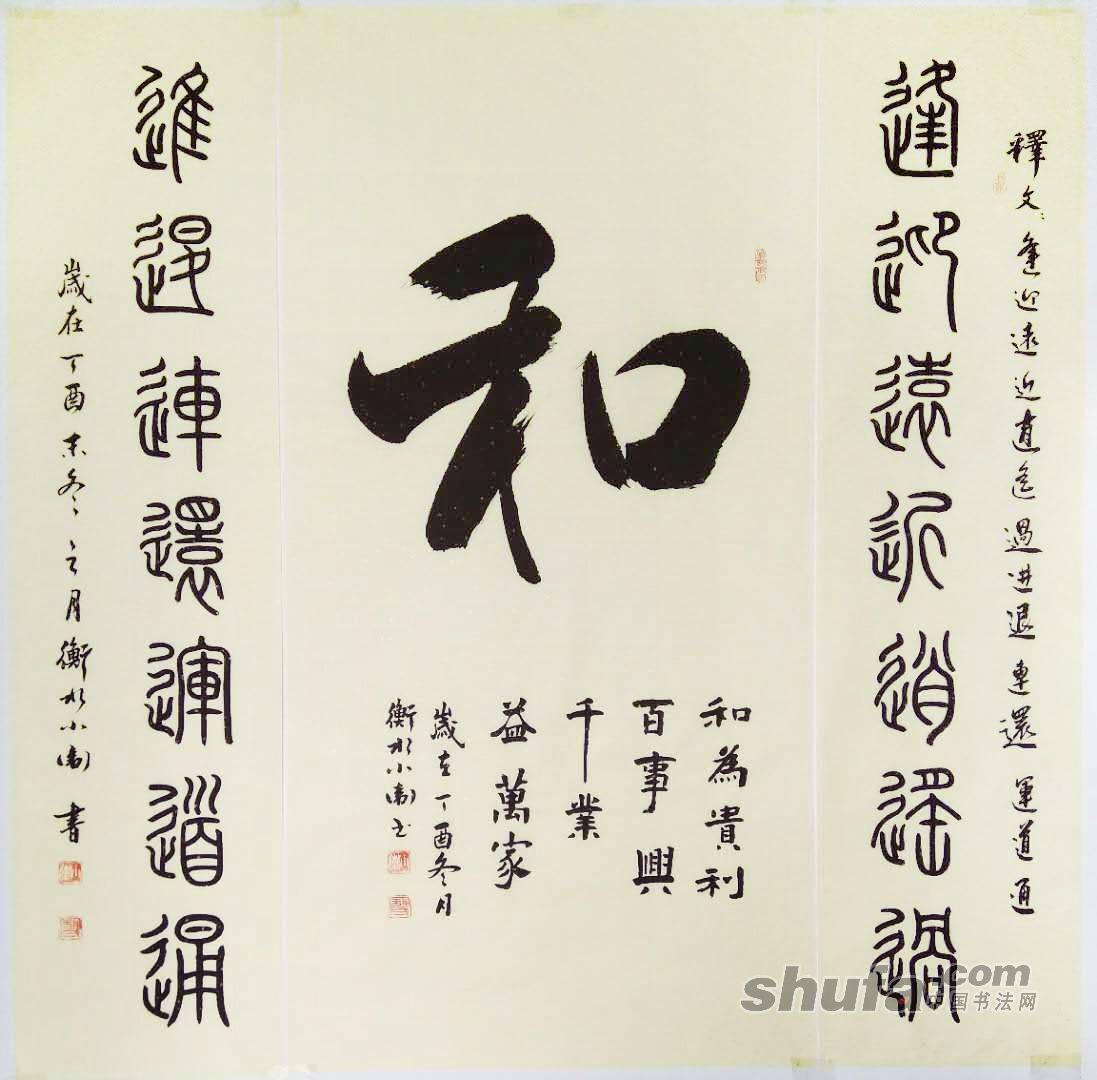 釋文：逢迎遠近逍遙過进退連還運道通
逢迎遠近逍遙過
和
和為貴利
百事興
千業
益萬家
歲在丁酉冬月
衡水小衛书
進退連還運道通
歲在丁酉末冬之月衡水小衛書
shufa.com
中国书法网